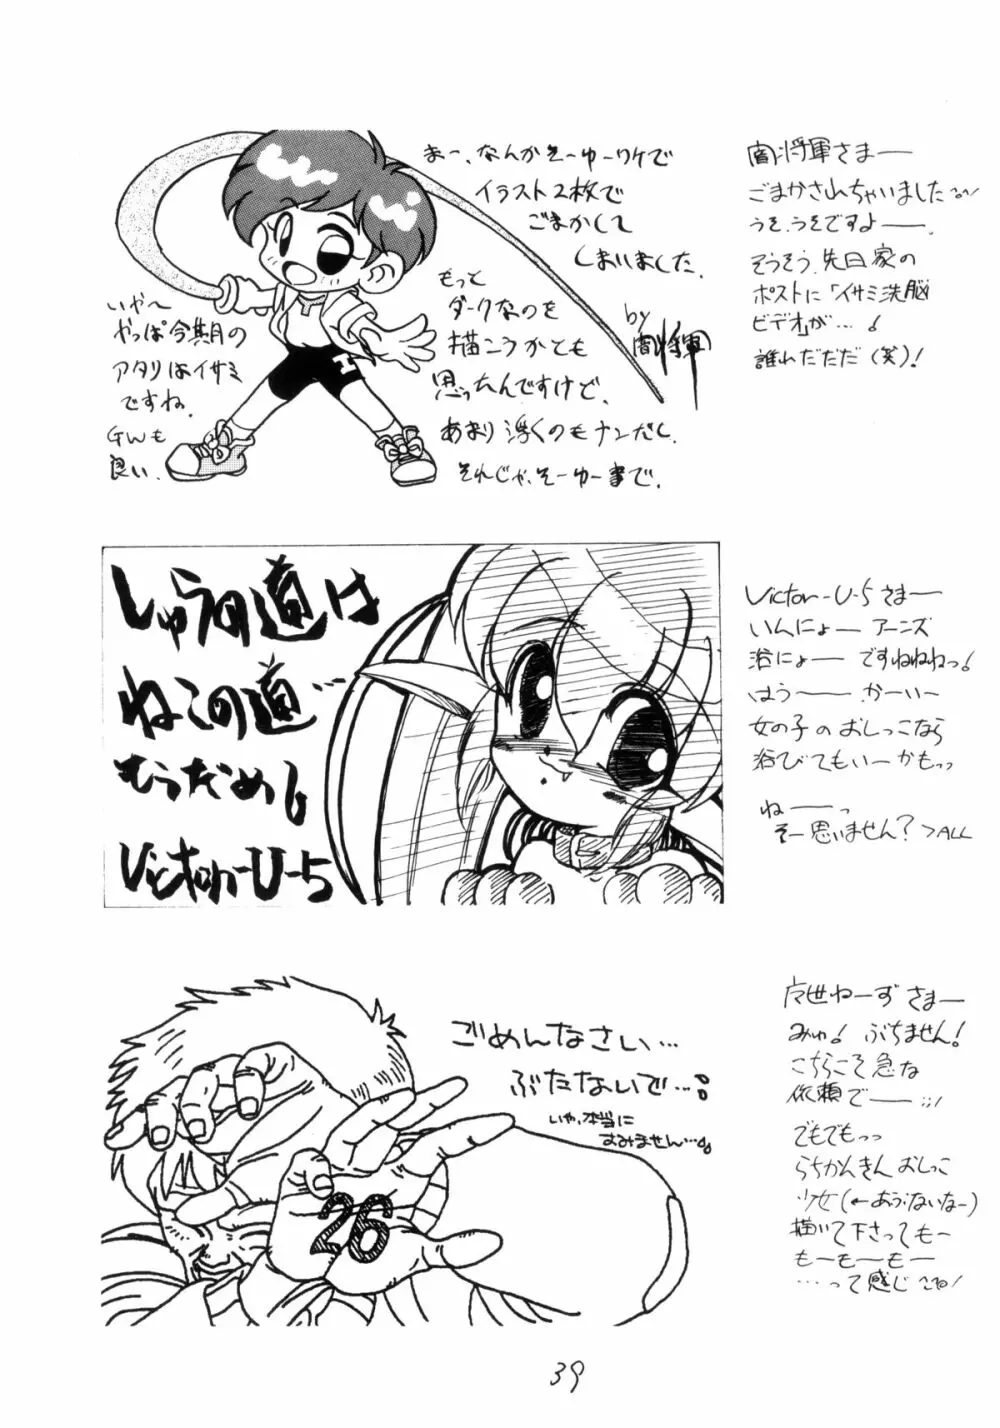 まー、なんかそーゆーワケで
イラスト2枚で
ごまかして
しまいました。
もっと
ダークなのを
描こうかとも
思ったんですけど、
あまり浮くのもナンだし、
それじゃ、そーゆー事で。
by
闇将軍
いや〜
やっぱ今期月の
アタリはイサミ
ですね。
GWも
良い。
闇将軍さまー
ごまかされちゃいました
うそ、うそですよー。
そうそう、先日家の
ポストに「イサミ洗脳
ビデオ」が…!
誰れだだだ(笑)!
しゅうの道は
ねこの道…
もうだめ!
Victor-U-5
Victor-U-5さまー
いんにょー アーンズ
浴にょー ですねねねっ!
はうー かーいー
女の子のおしっこなら
浴びてもいーかもっっ
ねーっ
そー思いません?>ALL
ごめんなさい…
ぶたないで…!
いや、本当に
すみません…!
26
ねーずさまー
みゅ! ぶちません!
こちらこそ急な
依頼でー
でもでもっっ
らちかんきんおしっこ
少女(←あぶないなー)
描いて下さってもー
もーもーもー
…って感じ
39